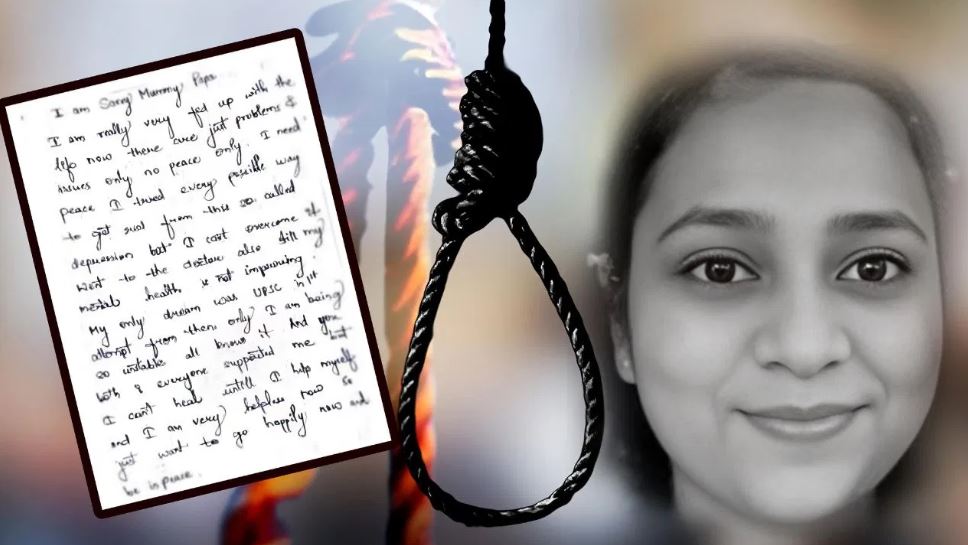 I am Sorry Mummy Papa
I am really very fed up with the
life now there are just problems &
issues only no peace only. I need
peace I tried every possible way
to get from this so called
depression but I cant overcome it
went to the doctor also still my
mental health is not improving.
My only dream was UPSC in 1st
attempt from then only I am being
so unstable all know it And you
both & everyone supported me but
I can't heal untill I help myself
and I am very helpless now so
just want to go happily now and
be in peace.